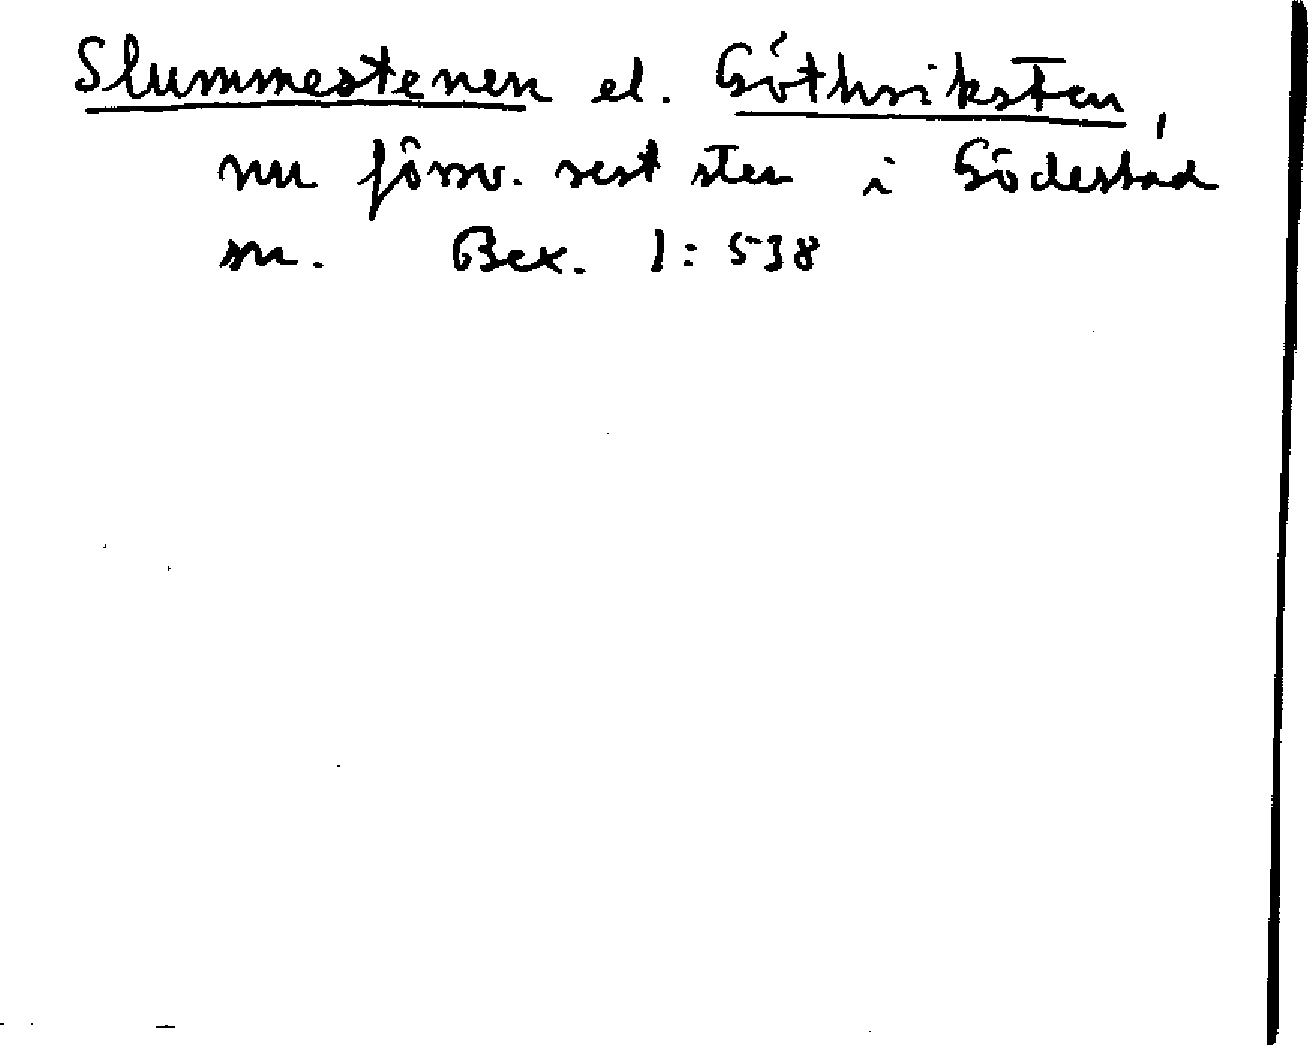 Slummestenen el. Göthriksten,
nu försv. rest sten i Gödestad
sn. Bex. 1:538